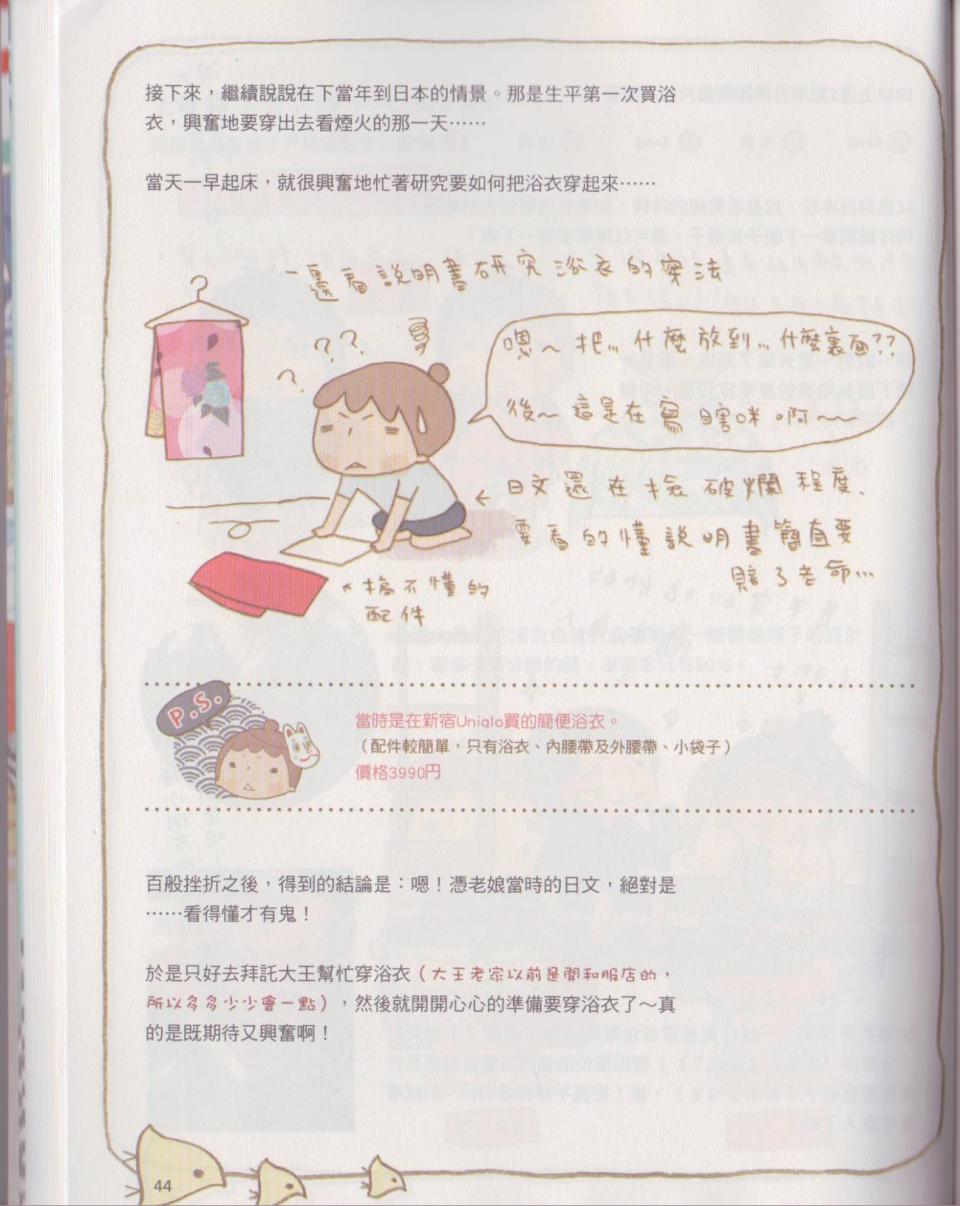 接下來，繼續說說在下當年到日本的情景。那是生平第一次買浴
衣，興奮地要穿出去看煙火的那一天……
當天一早起床，就很興奮地忙著研究要如何把浴衣穿起來……
一邊看說明書研究浴衣的穿法
???
嗯～把…什麼放到…什麼裏面??
後～這是在寫瞎咪啊～～
←日文還在撿破爛程度、
要看的懂說明書簡直要
賠了老命…
搞不懂的
配件
P.S.
當時是在新宿Uniqlo買的簡便浴衣。
（配件較簡單，只有浴衣、內腰帶及外腰帶、小袋子）
價格3990円
百般挫折之後，得到的結論是：嗯！憑老娘當時的日文，絕對是
……看得懂才有鬼！
於是只好去拜託大王幫忙穿浴衣（大王老家以前是開和服店的，
所以多多少少會一點），然後就開開心心的準備要穿浴衣了～真
的是既期待又興奮啊！
44